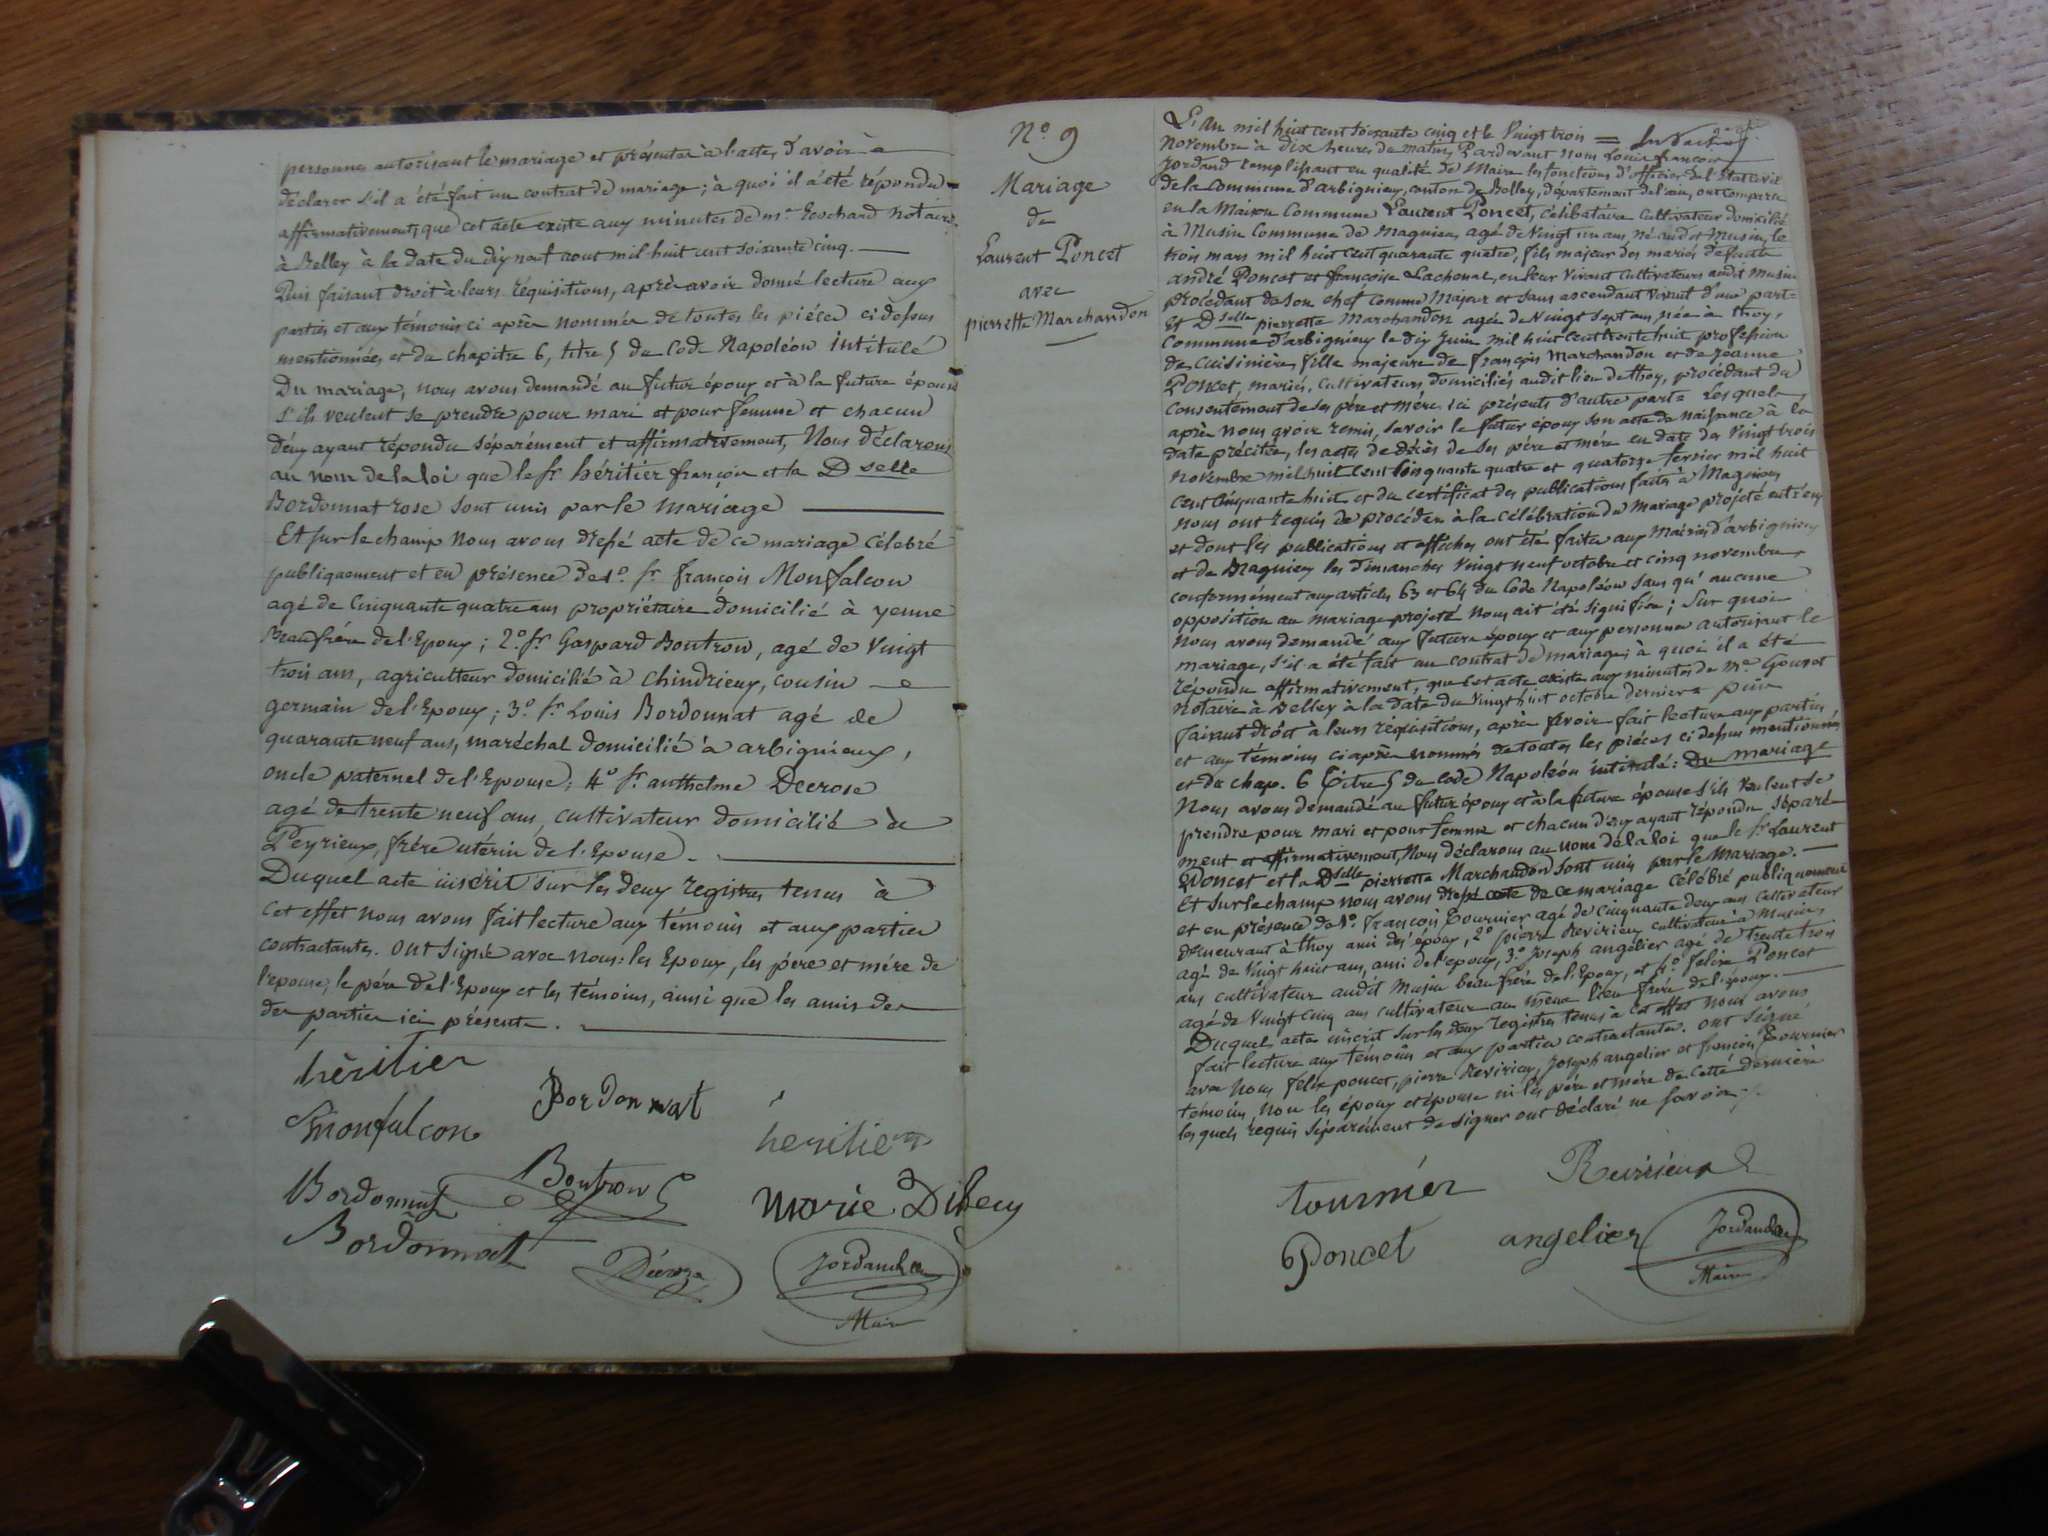 personnes autorisant le mariage et présentes à l'acte, d'avoir à
déclarer s'il a été fait un contrat de mariage; à quoi il a été répondu
affirmativement, que cet acte existe aux minutes de me notaire
à Belley à la date du dix neuf aout mil huit cent soixante cinq.
Puis faisant droit à leurs réquisitions, après avoir donné lecture aux
parties et aux témoins ci après nommés de toutes les pièces ci dessus
mentionnées, et du chapitre 6, titre 5 du Code Napoléon intitulé
Du mariage, nous avons demandé au futur époux et à la future épouse
s'ils veulent se prendre pour mari et pour femme et chacun
d'eux ayant répondu séparément et affirmativement, Nous déclarons
au nom de la loi que le sr héritier françois et la Dselle
Bordonnat rose sont unis par le mariage
Et sur le champ nous avons dressé acte de ce mariage célebré
publiquement et en présence de 1o. sr françois Monfalcon
agé de Cinquante quatre ans propriétaire domicilié à yenne
Beaufrère de l'Epoux; 2o. sr Gaspard Boutron, agé de Vingt
trois ans, agriculteur domicilié à Chindrieux, cousin
germain de l'Epoux; 3o. sr Louis Bordonnat agé de
quarante neuf ans, maréchal domicilié à arbignieux,
oncle paternel de l'Epouse; 4o sr. anthelme Decrose
agé de trente neuf ans, cultivateur domicilié à
Peyrieux, frère utérin de l'Epouse.
Duquel acte inscrit sur les deux registres tenus à
cet effet nous avons fait lecture aux témoins et aux parties
contractantes. Ont signé avec nous: les Epoux, les père et mère de
l'epouse, le père de l'Epoux et les témoins, ainsi que les amis des
des parties ici présents.
hèritier
Bordonnat
Monfalcon
heritier
Boutron
Bordonnat
Marie
Bordonnat
Décroze
Jordan
Maire
No 9
Mariage
de
Laurent Poncet
avec
pierrette Marchandon
L'An mil huit cent soixante cinq et le Vingt trois =
Novembre à dix heures du matin, Pardevant nous Louis françois
Jordan remplissant en qualité de Maire les fonctions d'officier de l'Etat civil
de la Commune d'arbignieu, canton de Belley, département de l'ain, ont comparu
en la Maison Commune Laurent Poncet, célibataire cultivateur domicilié
à Musin Commune de Magnieu, agé de Vingt un ans, né audit Musin, le
trois mars mil huit cent quarante quatre, fils majeur des mariés défunts
andré Poncet et françoise Lachenal, en leur vivant Cultivateurs audit Musin
procédant de son chef comme Majeur et sans ascendant vivant d'une part=
Et Dselle pierrette Marchandon agée de Vingt sept ans, née à thoy,
Commune d'arbignieu le dix Juin mil huit Cent trente huit profession
de Cuisinière, fille majeure de françois Marchandon et de Jeanne
Poncet, mariés, Cultivateurs, domiciliés audit lieu de thoy, procédant du
Consentement de ses père et mère, ici présents d'autre part= Les quels
après nous avoir remis, savoir le futur epoux son acte de naissance à la
date précitée, les actes de décès de ses père et mère en date des Vingt trois
novembre mil huit Cent Cinquante quatre et quatorze fevrier mil huit
cent cinquante huit et du certificat des publications faites à Magnieu
nous ont requis de procéder à la célébration du Mariage projeté entr'eux
et dont les publications et affiches ont été faites aux Mairies d'arbignieu
et de Magnieu les dimanches Vingt neuf octobre et cinq novembre
conformément aux articles 63 et 64 du Code Napoléon sans qu'aucune
opposition au mariage projeté nous ait été signifiée; Sur quoi
Nous avons demandé aux futurs époux et aux personnes autorisant le
mariage, s'il a été fait un contrat de mariage; à quoi il a été
répondu affirmativement, que cet acte existe aux minutes de Me Gousot
notaire à Belley à la date du Vingt huit octobre dernier = puis
faisant droit à leurs réquisitions, après avoir fait lecture aux parties
et aux témoins ci après nommés de toutes les pièces ci dessus mentionnées
et du chap. 6 Titre 5 du Code Napoléon intitulé: Du mariage
Nous avons demandé au futur époux et à la future épouse s'ils veulent se
prendre pour mari et pour femme et chacun d'eux ayant répondu séparé-
ment et affirmativement, Nous déclarons au nom de la loi que le sr Laurent
Poncet et la Dselle pierrette Marchandon sont unis par le Mariage.
Et sur le champ nous avons dressé acte de ce mariage célébré publiquement
et en présence de 1o. françois Tournier agé de cinquante deux ans cultivateur
demeurant à thoy ami des époux, 2o pierre Revirieu cultivateur à Musin,
agé de Vingt huit ans, ami de l'epoux, 3o Joseph angelier agé de trente trois
ans cultivateur audit Musin beau frère de l'Epoux, et 4o felix Poncet
agé de Vingt Cinq ans cultivateur au même lieu frère de l'époux.
Duquel acte inscrit sur les deux registres tenus à cet effet nous avons
fait lecture aux témoins et aux parties contractantes. ont signé
avec nous, félix poncet, pierre Revirieu, Joseph angelier et françois Tournier
témoins, non les époux et épouse ni les père et mère de cette dernière
les quels requis séparément de signer ont déclaré ne savoir
tournier
Revirieux
Poncet
angelier
Jordan
Maire